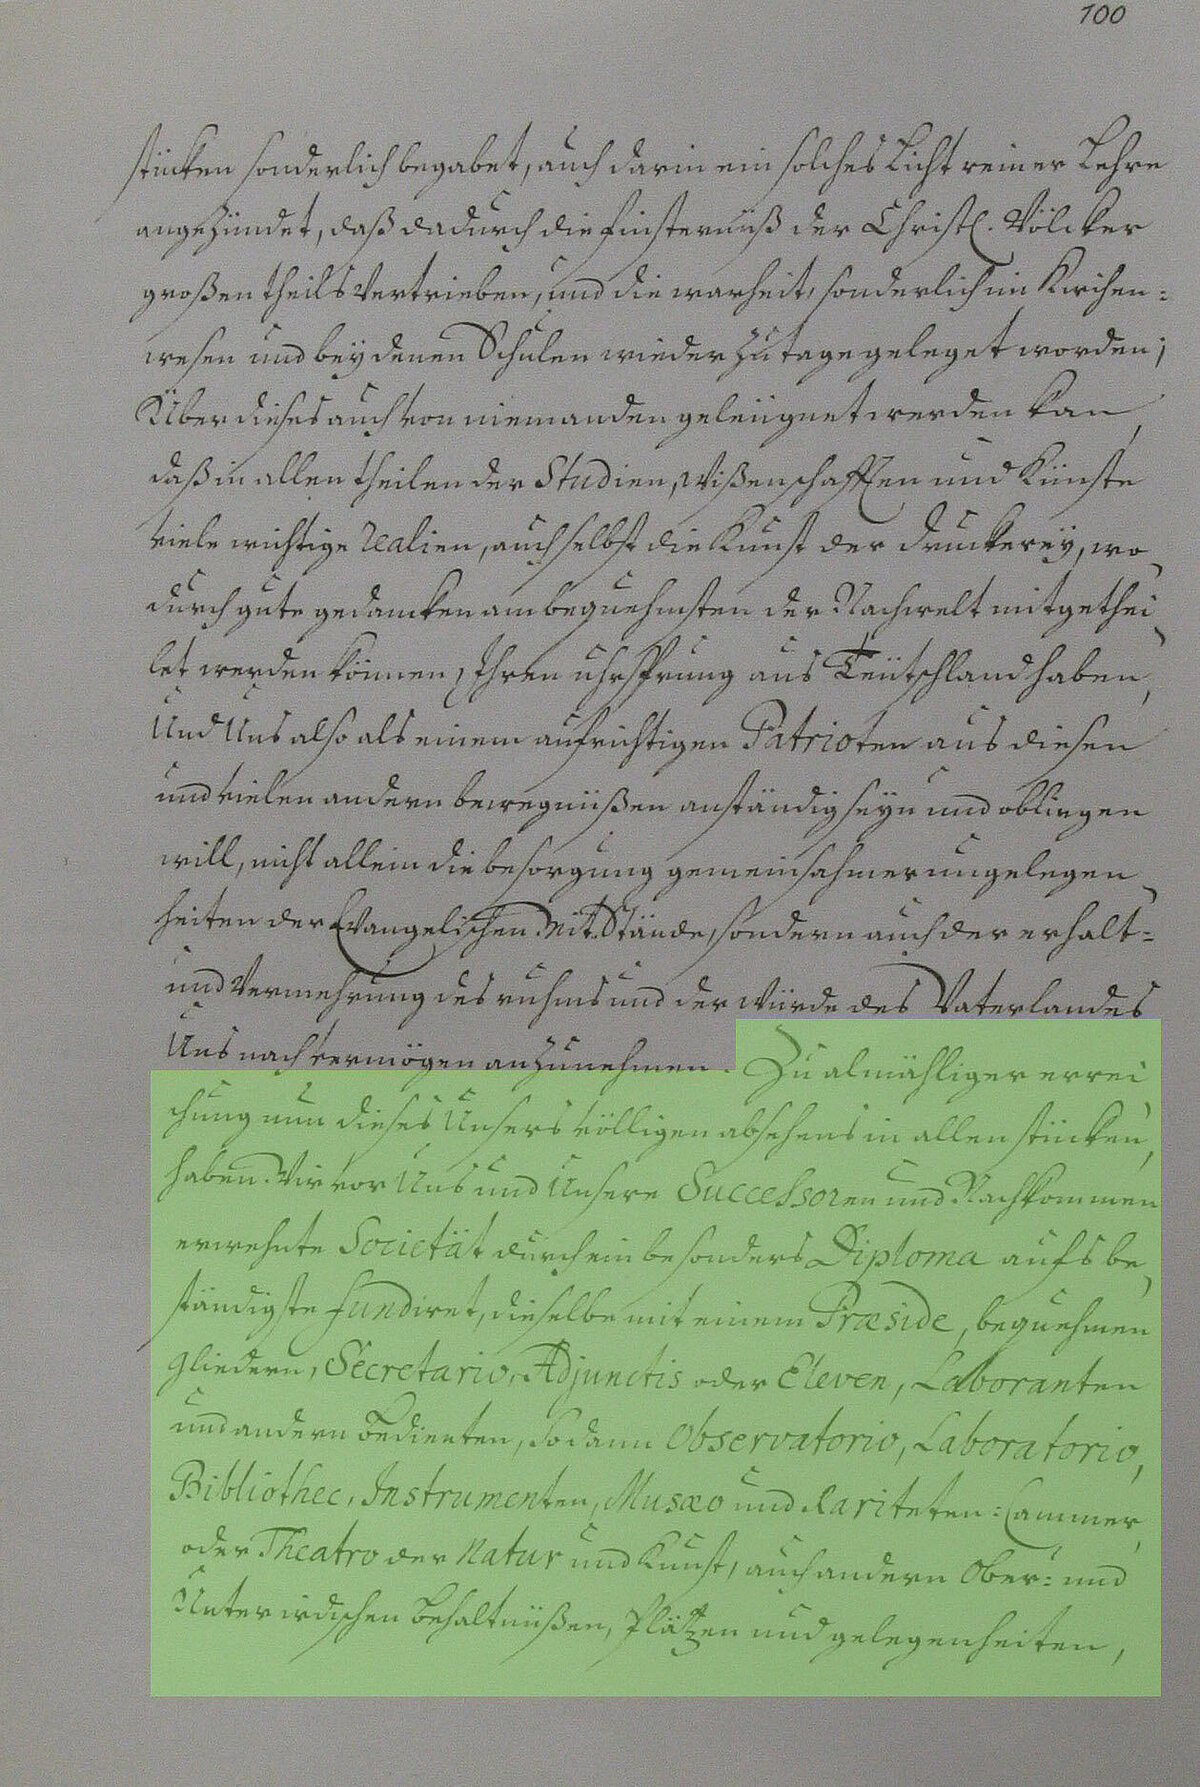 100
stücken sonderlich begabet, auch darin ein solches Licht reiner Lehre
angezündet, daß dadurch die Finsternüß der Christl. Völcker
großen theils vertrieben, und die warheit, sonderlich im Kirchen=
wesen und bey denen Schulen wieder zu tage geleget worden;
Über dieses auch von niemanden geleugnet werden kan,
daß in allen theilen der Studien, Wißenschafften und Künste
viele wichtige Realien, auch selbst die Kunst der Druckerey, wo
durch gute gedancken am bequehmsten der Nachwelt mitgethei
let werden können, Ihren uhrsprung aus Teütschland haben,
Und Uns also als einem aufrichtigen Patrioten aus diesen
und vielen andern bewegnüßen anständig seyn und obliegen
will, nicht allein die besorgung gemeinsahmer angelegen
heiten der Evangelischen Mit-Stände, sondern auch der erhalt=
und Vermehrung des ruhms und der würde des Vaterlandes
Uns nach vermögen anzunehmen. Zu almähliger errei
chung nun dieses Unsers völligen absehens in allen stücken,
haben Wir vor Uns und Unsere Successoren und Nachkommen
erwehnte Societät durch ein besonders Diploma aufs be
ständigste fundiret, dieselbe mit einem Præside, bequehmen
gliedern, Secretario, Adjunctis oder Eleven, Laboranten
und andern Bedienten, sodann Observatorio, Laboratorio,
Bibliothec, Instrumenten, Musæo und Rariteten=Cammer,
oder Theatro der Natur und Kunst, auch andern Ober= und
Unterirdischen Behaltnüßen, Plätzen und gelegenheiten,